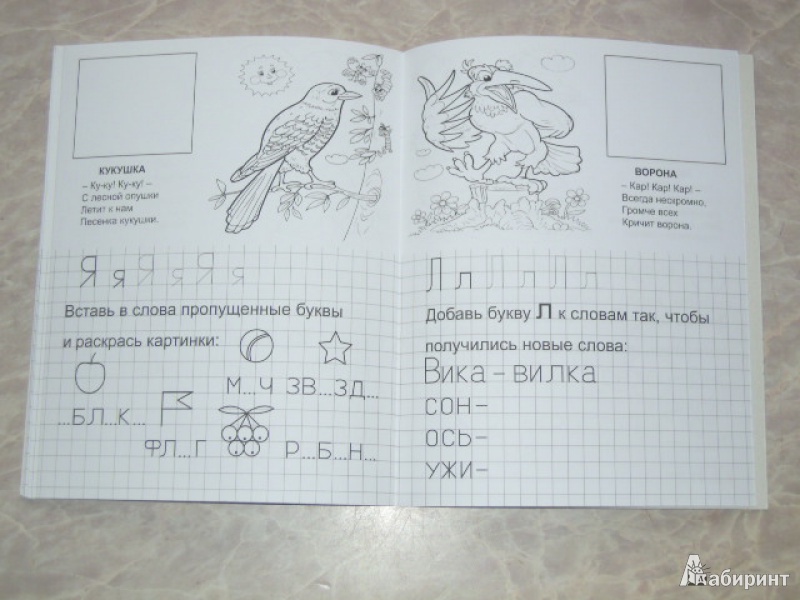 КУКУШКА
– Ку-ку! Ку-ку! –
С лесной опушки
Летит к нам
Песенка кукушки.
Я я Я я Я я
Вставь в слова пропущенные буквы
и раскрась картинки:
М...Ч ЗВ...ЗД...
...БЛ...К...
ФЛ...Г Р...Б...Н...
ВОРОНА
– Кар! Кар! Кар! –
Всегда нескромно,
Громче всех
Кричит ворона.
Л л Л л Л л
Добавь букву Л к словам так, чтобы
получились новые слова:
Вика – вилка
сон –
ось –
ужи –
Лабиринт